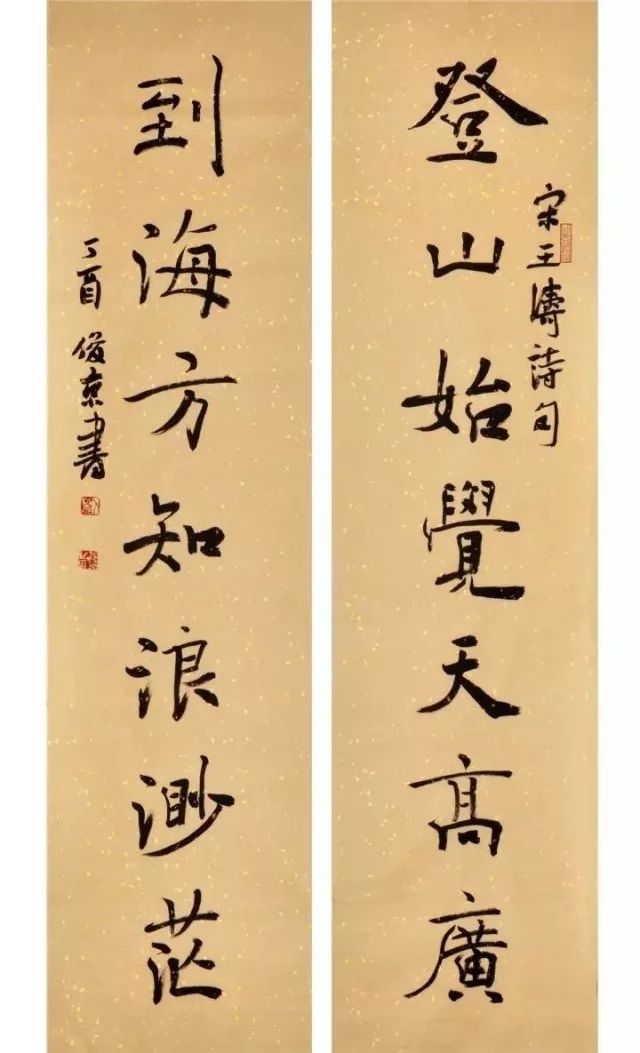 宋王濤詩句
登山始覺天高廣
到海方知浪渺茫
丁酉俊京書